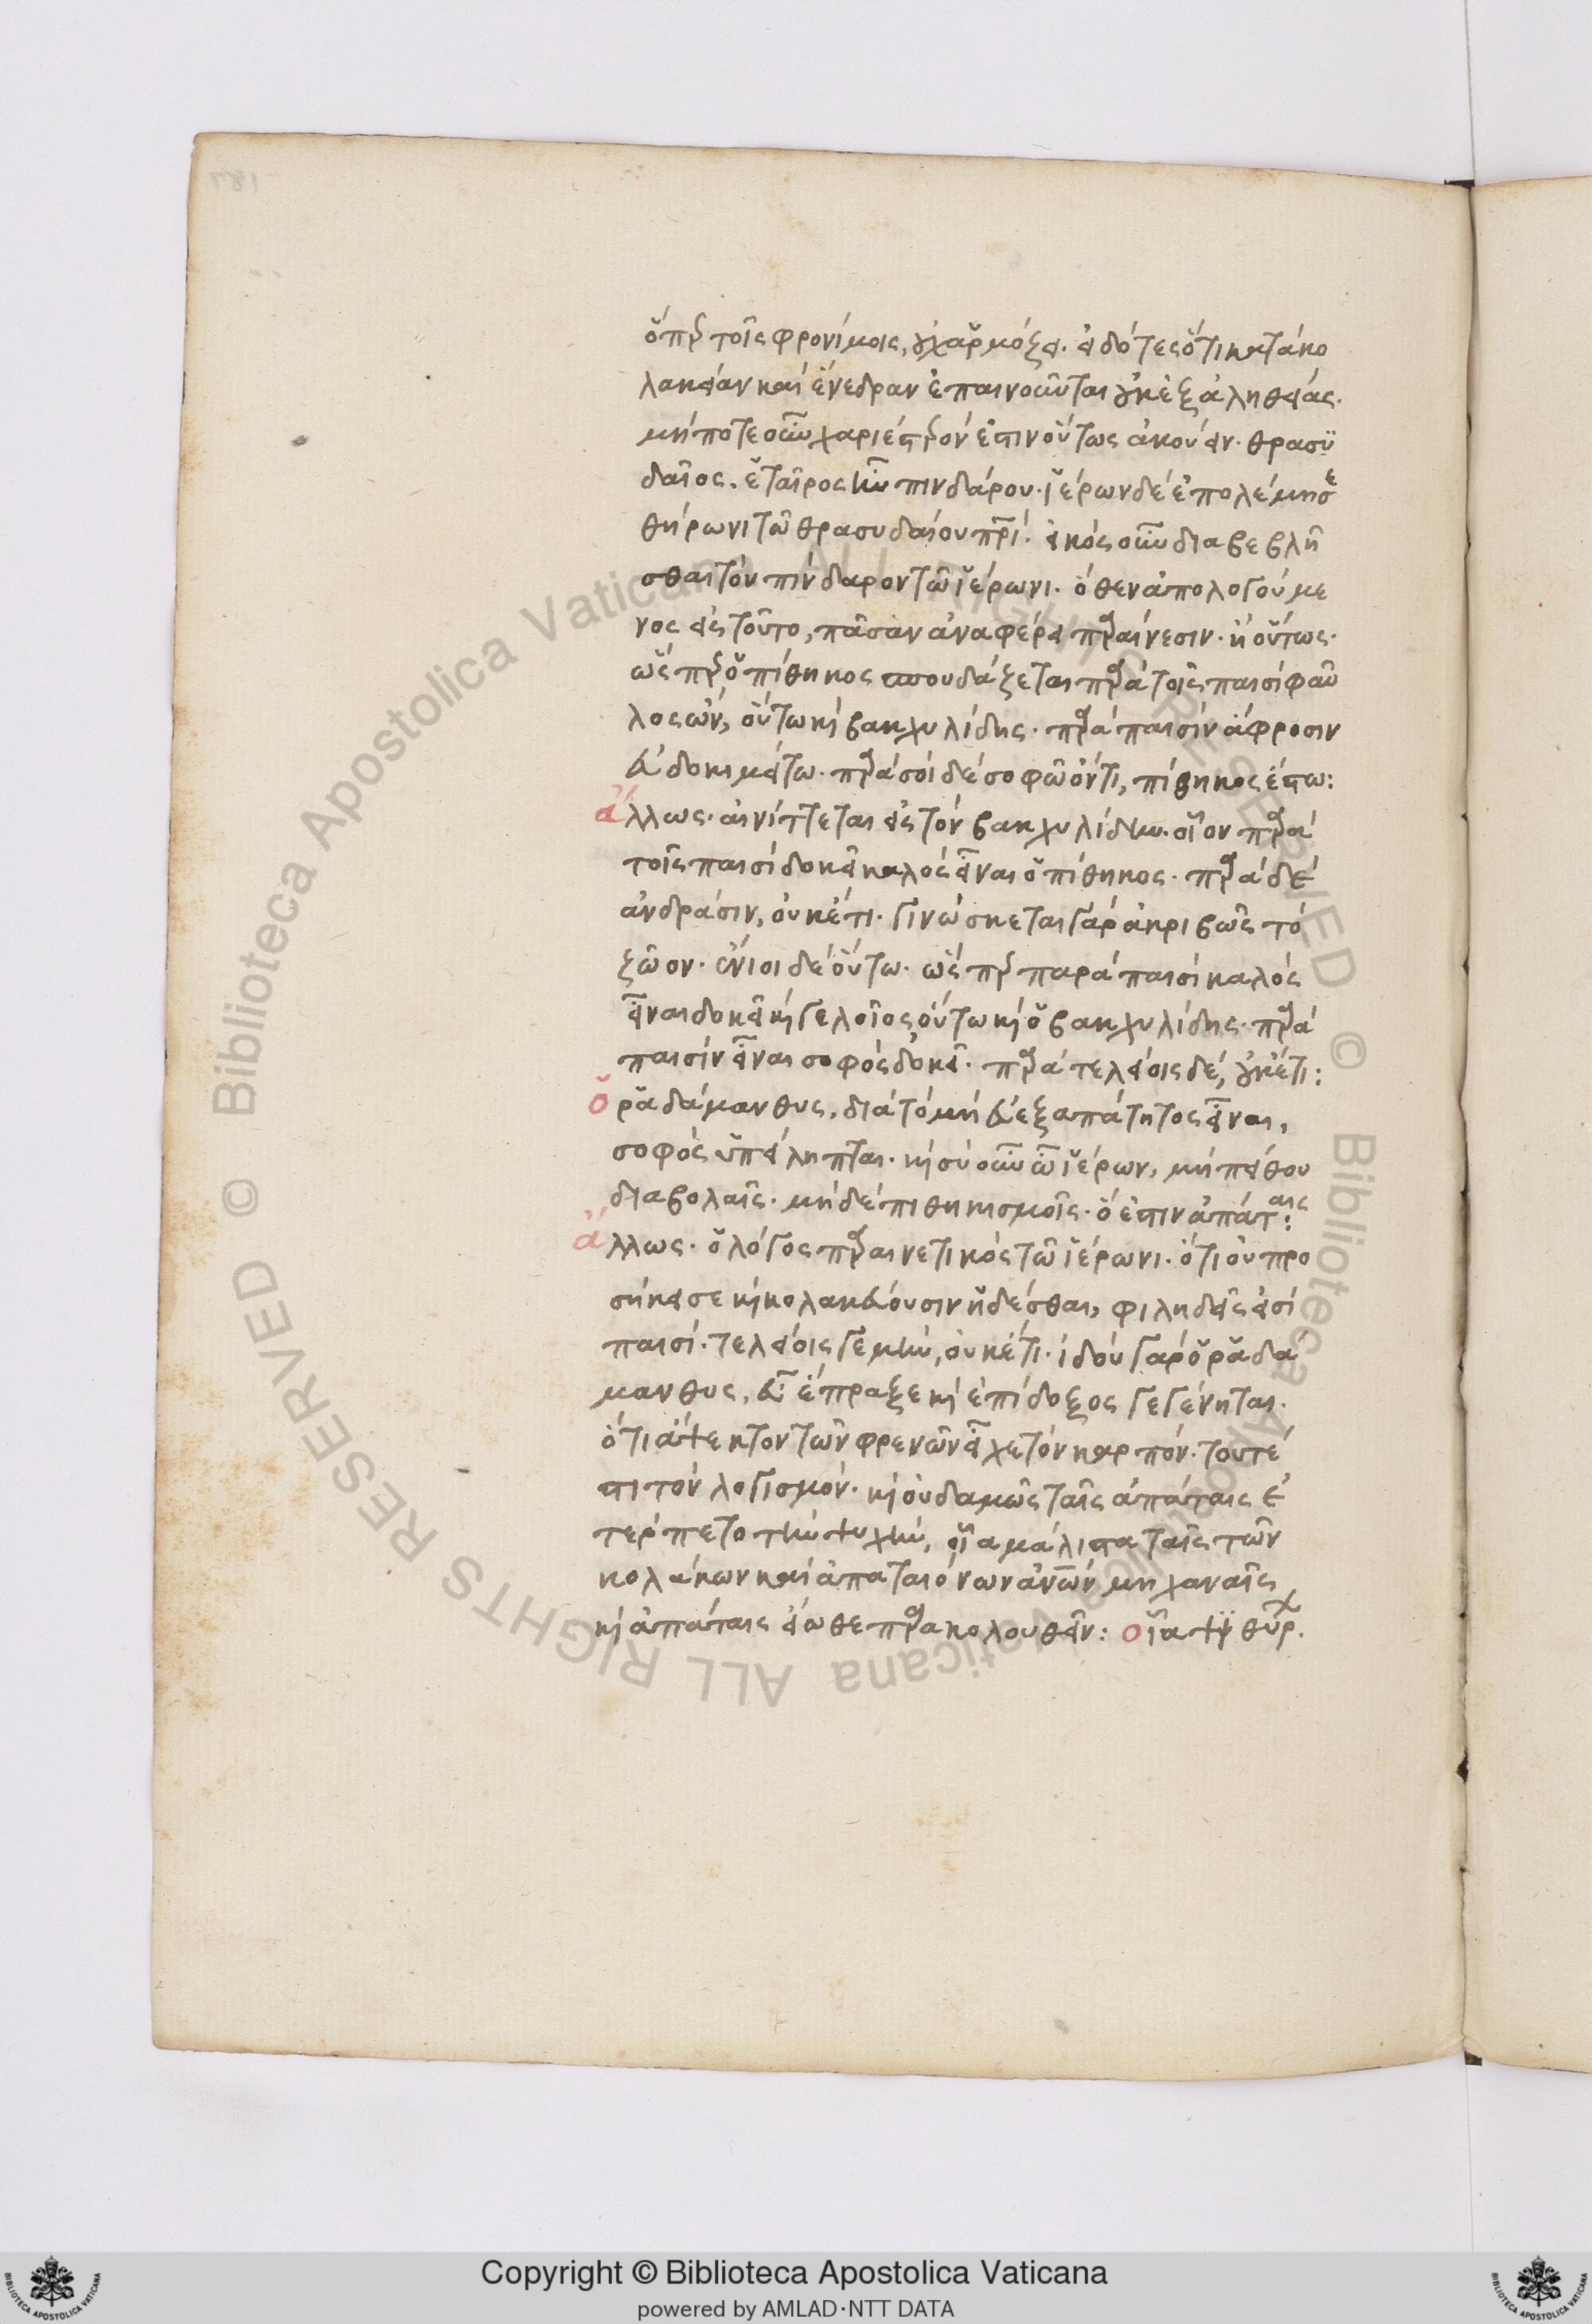 ὅπερ τοῖς φρονίμοις, οὐχ ἁρμόζει. εἰδότες ὅτι κατὰ κο
λακείαν καὶ ἕνεδραν ἐπαινοῦνται οὐκ ἐξ ἀληθείας.
μήποτε οὖν χαριέστερόν ἐστιν οὕτως ἀκούειν. θρασυ
δαῖος. ἑταῖρος ἦν πινδάρου. ἱέρων δὲ ἐπολέμησε
θήρωνι τῶ θρασυδαίου πατρί. εἰκὸς οὖν διαβεβλῆ
σθαι τὸν πίνδαρον τῶ ἱέρωνι. ὅθεν ἀπολογούμε
νος εἰς τοῦτο, πᾶσαν ἀναφέρει παραίνεσιν. ἢ οὕτως.
ὥσπερ ὁ πίθηκος σπουδάζεται παρὰ τοῖς παισὶ φαῦ
λος ὤν, οὕτω καὶ βακχυλίδης. παρὰ παισὶν ἄφροσιν
εὐδοκιμείτω. παρὰ σοὶ δὲ σοφῶ ὄντι, πίθηκος ἔστω:
ἄλλως. αἰνίττεται εἰς τὸν βακχυλίδην. οἷον παρὰ
τοῖς παισὶ δοκεῖ καλὸς εἶναι ὁ πίθηκος. παρὰ δὲ
ἀνδράσιν, οὐκέτι. γινώσκεται γὰρ ἀκριβῶς τὸ
ζῶον. ἔνιοι δὲ οὕτω. ὥσπερ παρὰ παισὶ καλὸς
εἶναι δοκεῖ καὶ γελοῖος οὕτω καὶ ὁ βακχυλίδης. παρὰ
παισὶν εἶναι σοφὸς δοκεῖ. παρὰ τελείοις δέ, οὐκέτι:
ὁ ῥαδάμανθυς, διὰ τὸ μὴ εὐεξαπάτητος εἶναι,
σοφὸς ὑπείληπται. καὶ σὺ οὖν ὦ ἱέρων, μὴ πείθου
διαβολαῖς. μὴ δὲ πιθηκισμοῖς. ὅ ἐστιν ἀπάταις:
ἄλλως. ὁ λόγος παραινετικὸς τῶ ἱέρωνι. ὅτι οὐ προ
σήκει σε καὶ κολακεύουσιν ἥδεσθαι, φιληδεῖς εἰσὶ
παισί. τελείοις γε μὴν, οὐκέτι. ἰδοὺ γὰρ ὁ ῥαδά
μανθυς, εὖ ἔπραξε καὶ ἐπίδοξος γεγένηται.
ὅτι ἄψεκτον τῶν φρενῶν εἶχε τὸν καρπόν. τουτέ
στι τὸν λογισμόν. καὶ οὐδαμῶς ταῖς ἀπάταις ἐ
τέρπετο τὴν ψυχὴν, οἷα μάλιστα ταῖς τῶν
κολάκων καὶ ἀπαταιόνων ἀνθρώπων μηχαναῖς
καὶ ἀπάταις εἴωθε παρακολουθεῖν: οἷα ψιθύρ.